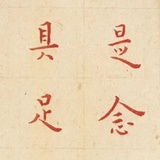 是念
具足